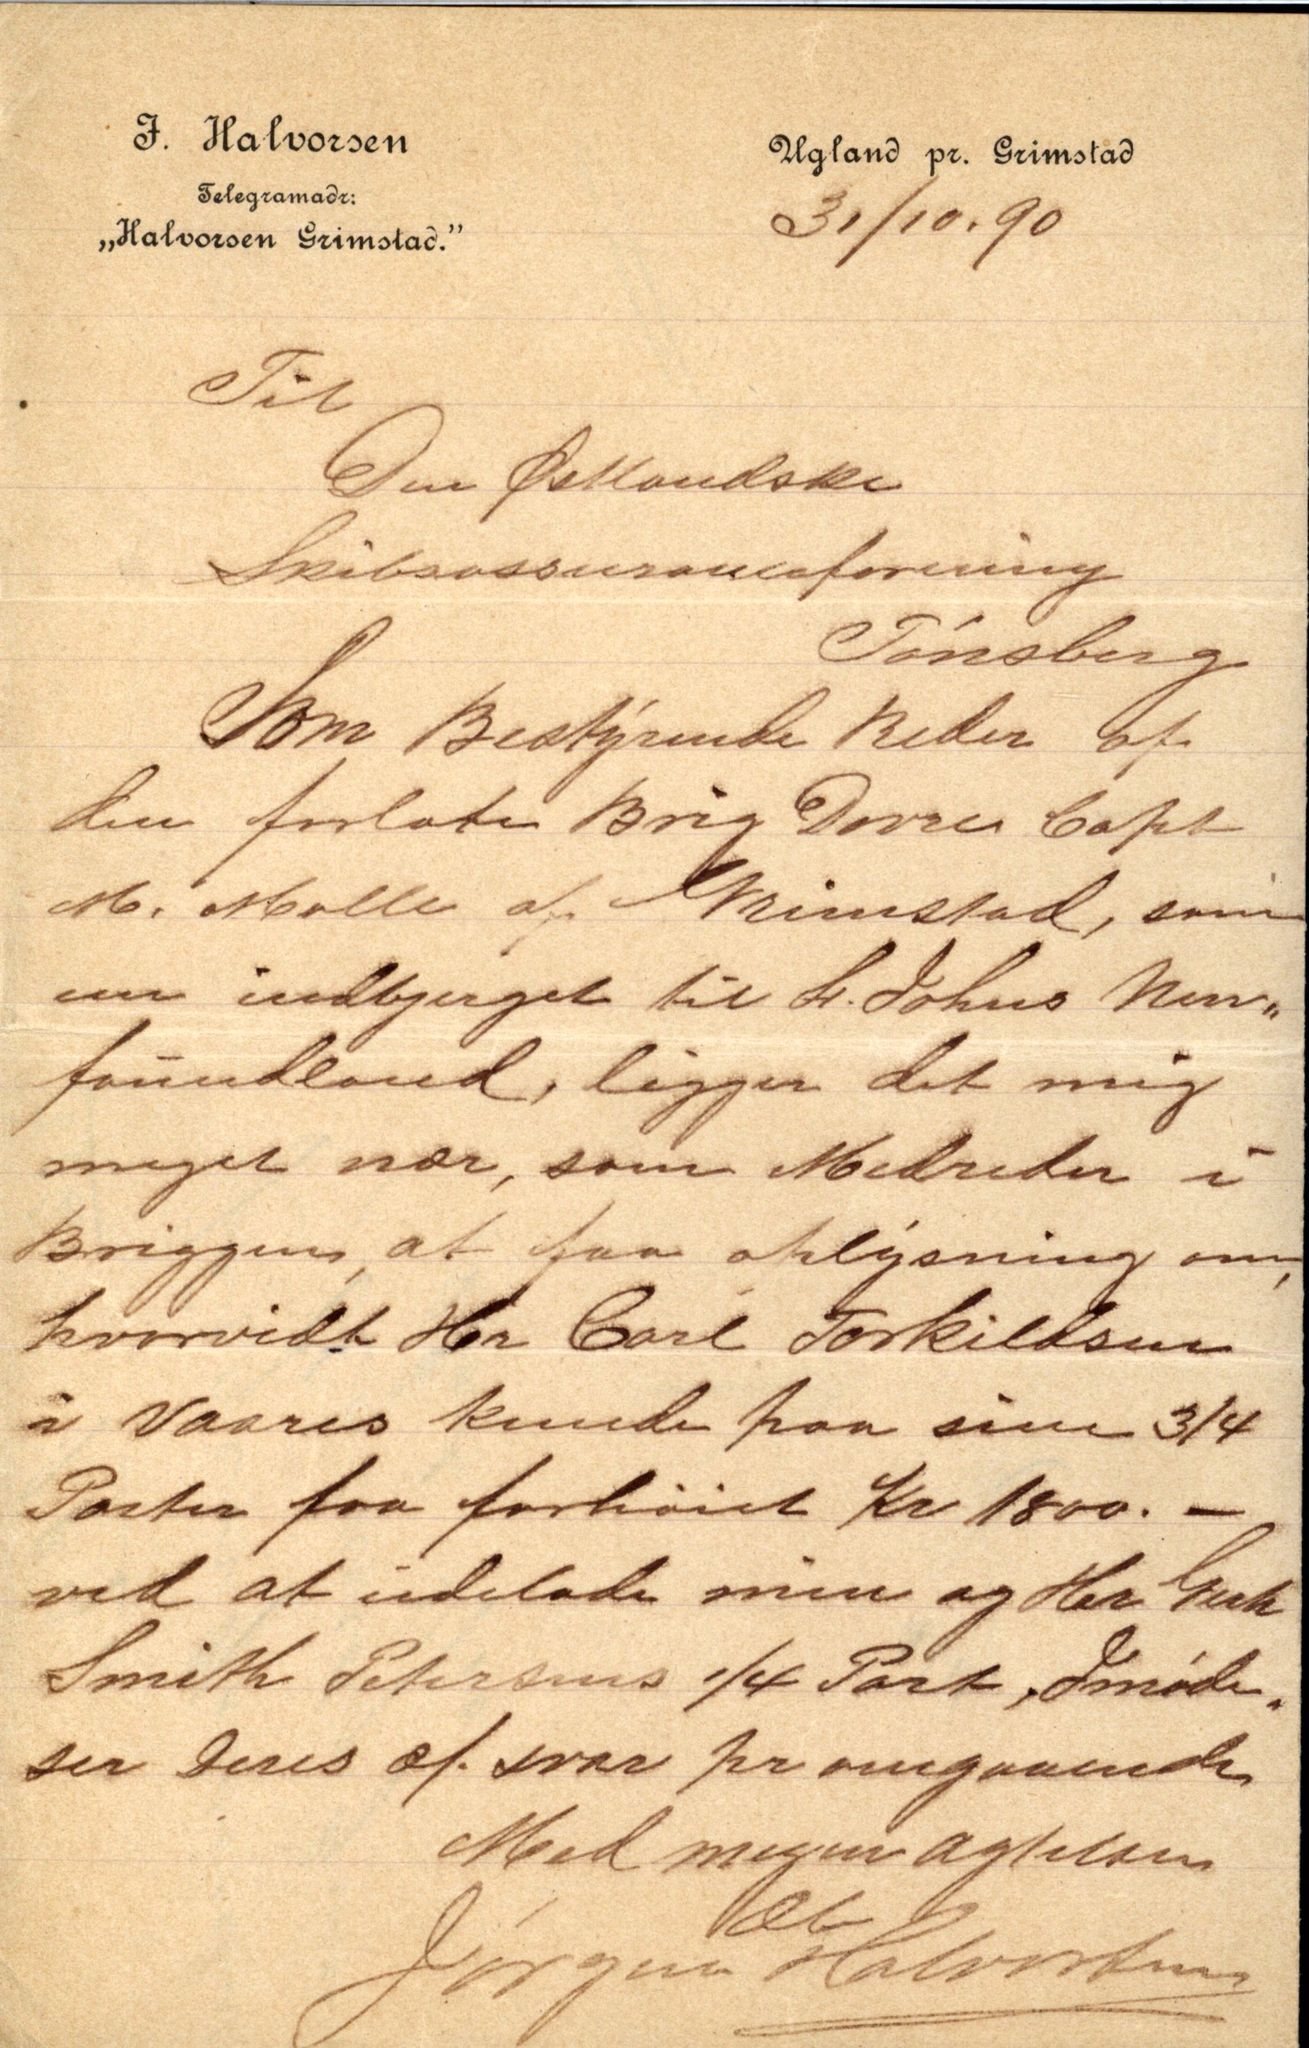 J. Halvorsen
Telegramadr:
„Halvorsen Grimstad.”
Ugland pr. Grimstad
31/10. 90
Til
Den Østlandske
Skibsassuranceforening
Tönsberg
Som Bestÿrende Reder af
den forlate Brig Dovre Capt
M. Malle af Grimstad, som
nu indbjerget til St. Johns New„
foundland, ligger det mig
meget nær, som Medreder i
Briggen, at faa oplÿsning om,
hvorvidt Her Carl Torkildsen
i Vaares kunde paa sine 3/4
Parter faa forhöiet Kr 1800. –
ved at udelade min og Her
Smith Petersens 1/4 Part, Imöde„
ser Deres æ. svar pr omgaaende
Med megen agtelse
Æb
Jörgen Halvorsen